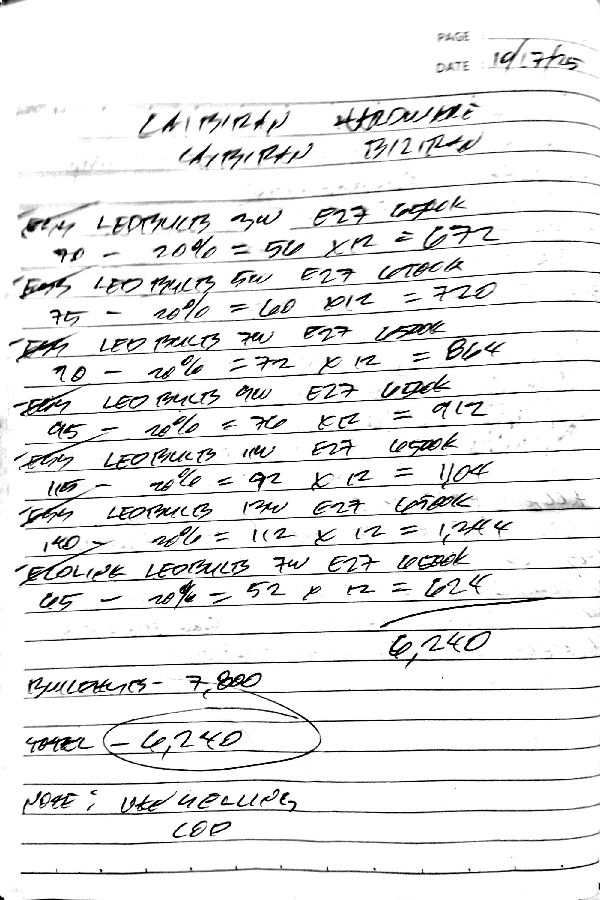 PAGE
DATE 10/17/25
CAIBIRAN HARDWARE
CAIBIRAN BILIRAN
LEDBULB 3W E27 6500K
70 - 20% = 56 X 12 = 672
LED BULB 5W E27 6500K
75 - 20% = 60 X12 = 720
LED BULB 7W E27 6500K
90 - 20% = 72 X 12 = 864
LEDBULB 9W E27 6500K
95 - 20% = 76 X12 = 912
LEDBULB 11W E27 6500K
115 - 20% = 92 X 12 = 1,104
LEDBULB 13W E27 6500K
140 - 20% = 112 X 12 = 1,344
ECOLINK LEDBULB 7W E27 6500K
65 - 20% = 52 X 12 = 624
6,240
- 7,800
TOTAL - 6,240
NOTE: VAN SELLING
COD